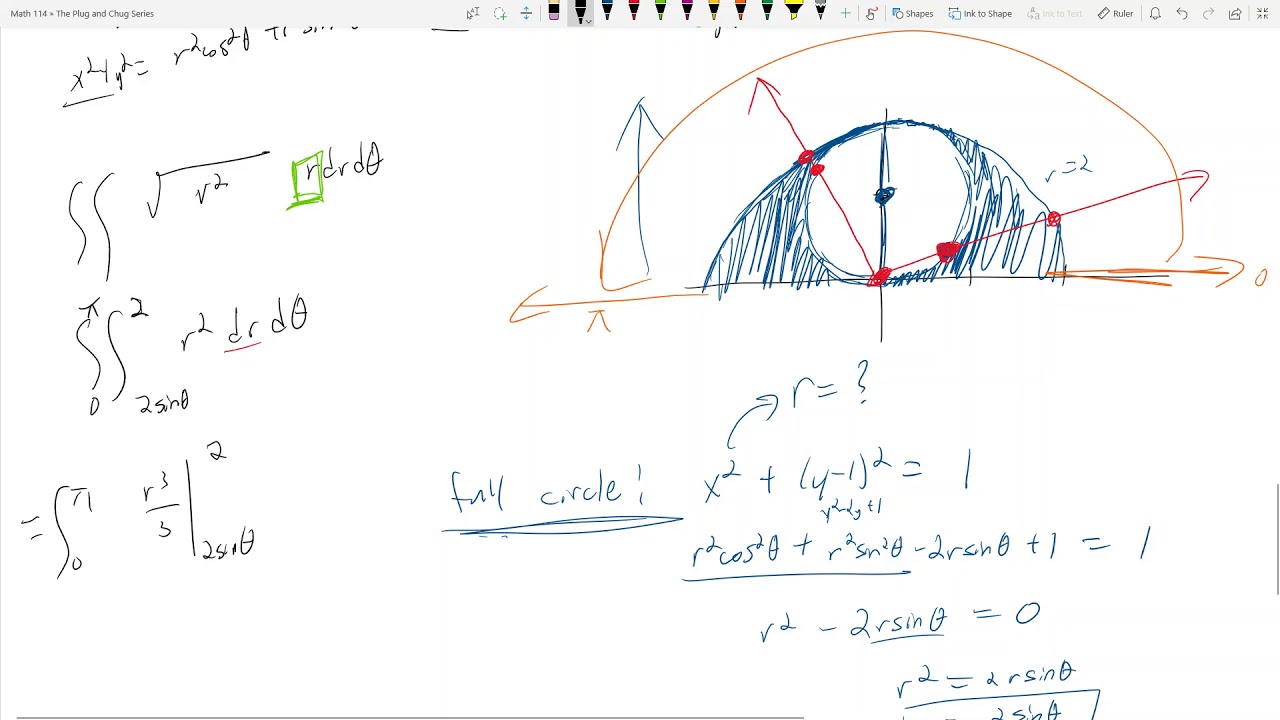 Math 114 » The Plug and Chug Series
Shapes
Ink to Shape
Ink to Text
Ruler
x²+y²= r²cos²θ +
∫∫ √r² r dr dθ
∫₀^π ∫_{2sinθ}^2 r² dr dθ
= ∫₀^π r³/3 |_{2sinθ}^2
r=2
π
0
r = ?
full circle!
x² + (y-1)² = 1
y²-2y+1
r²cos²θ + r²sin²θ - 2rsinθ + 1 = 1
r² - 2rsinθ = 0
r² = 2rsinθ
2sinθ